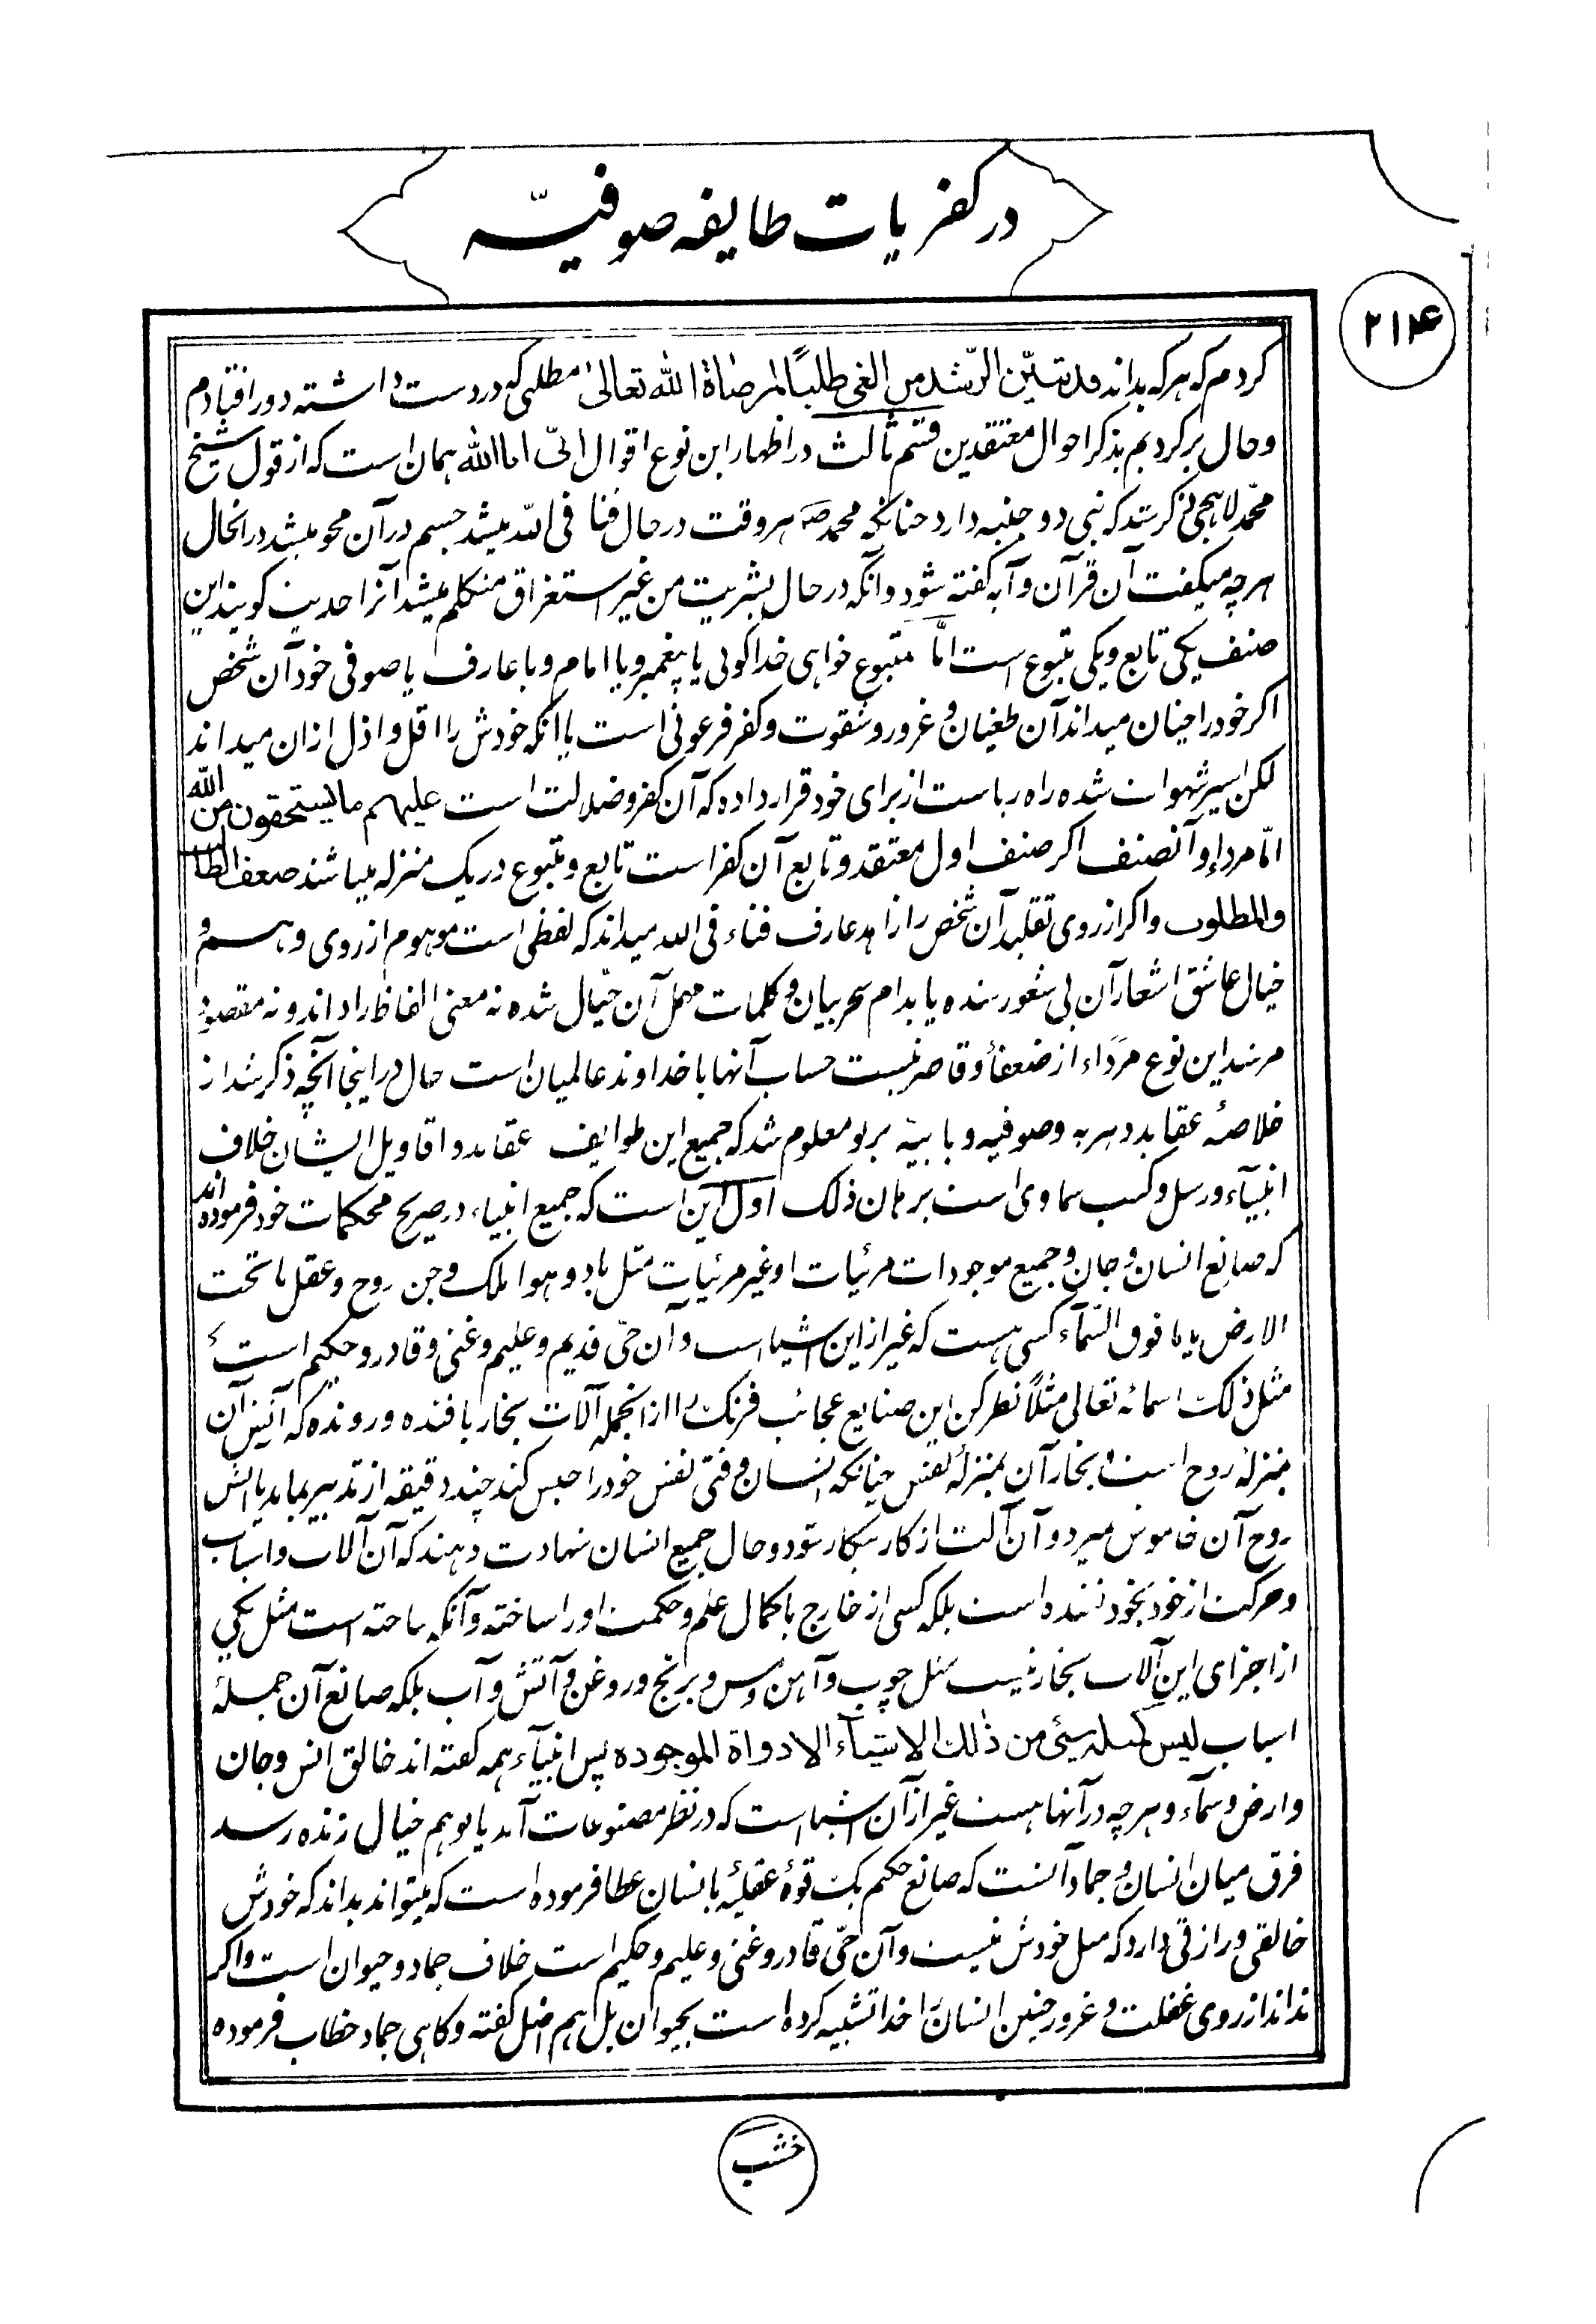 در کفریات طایفه صوفیّه
۲۱۴
کردم که هرکه بداند قد تبیّن الرّشد من الغی طلباً لمرضاة الله تعالیٰ مطلبی که در دست داشته دور افتادم
وحال برکردیم بذکر احوال معتقدین قسم ثالث در اظهار این نوع اقوال انّی انا الله همان است که از قول شیخ
محمّد لاهیجی ذکر شد که نبی دو جنبه دارد چنانکه محمد ص هر وقت در حال فنا فی الله میشد جسم در آن محو میشد در انحال
هرچه میکفت آن قرآن و آیه کفته شود و آنکه در حال بشریت من غیر استغراق متکلم میشد آنرا حدیث کویند این
صنف یکی تابع و یکی متبوع است امّا متبوع خواهی خدا کوئی یا پیغمبر و یا امام و یا عارف یا صوفی خود آن شخص
اکر خود را چنان میداند آن طغیان و غرور و شقوت و کفر فرعونی است یا آنکه خودش را اقل و اذل از ان میداند
لکن اسیر شهوات شده راه ریاست از برای خود قرار داده که آن کفر و ضلالت است علیهم ما یستحقون من الله
امّا مرداء و آنصنف اکر صنف اول معتقد و تابع آن کفر است تابع و متبوع در یک منزله میباشند ضعف الطالب
والمطلوب و اکر از روی تقلید آن شخص را زاهد عارف فناء فی الله میداند که لفظی است موهوم از روی وهم و
خیال عاشق اشعار آن بی شعور شده یا بدام سحر بیان و کلمات مهمل آن خیّال شده نه معنی الفاظ را داند و نه مقصود
مرشد این نوع مرداء از ضعفاء و قاصر نیست حساب آنها با خداوند عالمیان است حال در اینجا آنچه ذکر شد از
خلاصهٔ عقاید دهریه و صوفیه و بابیّه بر تو معلوم شد که جمیع این طوایف عقاید و اقاویل ایشان خلاف
انبیآء و رسل و کتب سماوی است برهان ذلک اول این است که جمیع انبیاء در صریح محکمات خود فرموده اند
که صانع انسان و جان و جمیع موجودات مرئیات او غیر مرئیات مثل باد و هوا ملک و جن روح و عقل ما تحت
الارض یا ما فوق السّمآء کسی هست که غیر از این اشیا است و آن حیّ قدیم و علیم و غنی و قادر و حکیم است
مثل ذلک اسمائه تعالی مثلاً نظر کن این صنایع عجائب فرنک را از انجمله آلات بخار بافنده و رونده که آتش آن
بمنزلهٔ روح است و بخار آن بمنزلهٔ نفس چنانکه انسان وقتی نفس خود را حبس کند چند دقیقه از تدبیر بماند یا آتش
روح آن خاموش میرد و آن آلت از کار بیکار شود و حال جمیع انسان شهادت دهند که آن آلات و اسباب
و حرکت از خود بخود نشده است بلکه کسی از خارج با کمال علم و حکمت او را ساخته و آنکه ساخته است مثل یکی
از اجزای این آلات بخار نیست مثل چوب و آهن و مس و برنج و روغن و آتش و آب بلکه صانع آن جملهٔ
اسباب لیس کمثله شیئی من ذٰلک الاشیآء الادواة الموجوده پس انبیآء همه کفته اند خالق انس و جان
و ارض و سمآء و هرچه در آنها هست غیر از آن اشیا است که در نظر مصنوعات آمد یا بوهم خیال زنده رسد
فرق میان انسان و جماد آنست که صانع حکیم یک قوهٔ عقلیهٔ بانسان عطا فرموده است که میتواند بداند که خودش
خالقی و رازقی دارد که مثل خودش نیست و آن حیّ قادر و غنی و علیم و حکیم است خلاف جماد و حیوان است و اکر
نداند از روی غفلت و غرور چنین انسان را خدا تشبیه کرده است بحیوان بل هم اضل کفته و کاهی جماد خطاب فرموده
خشب